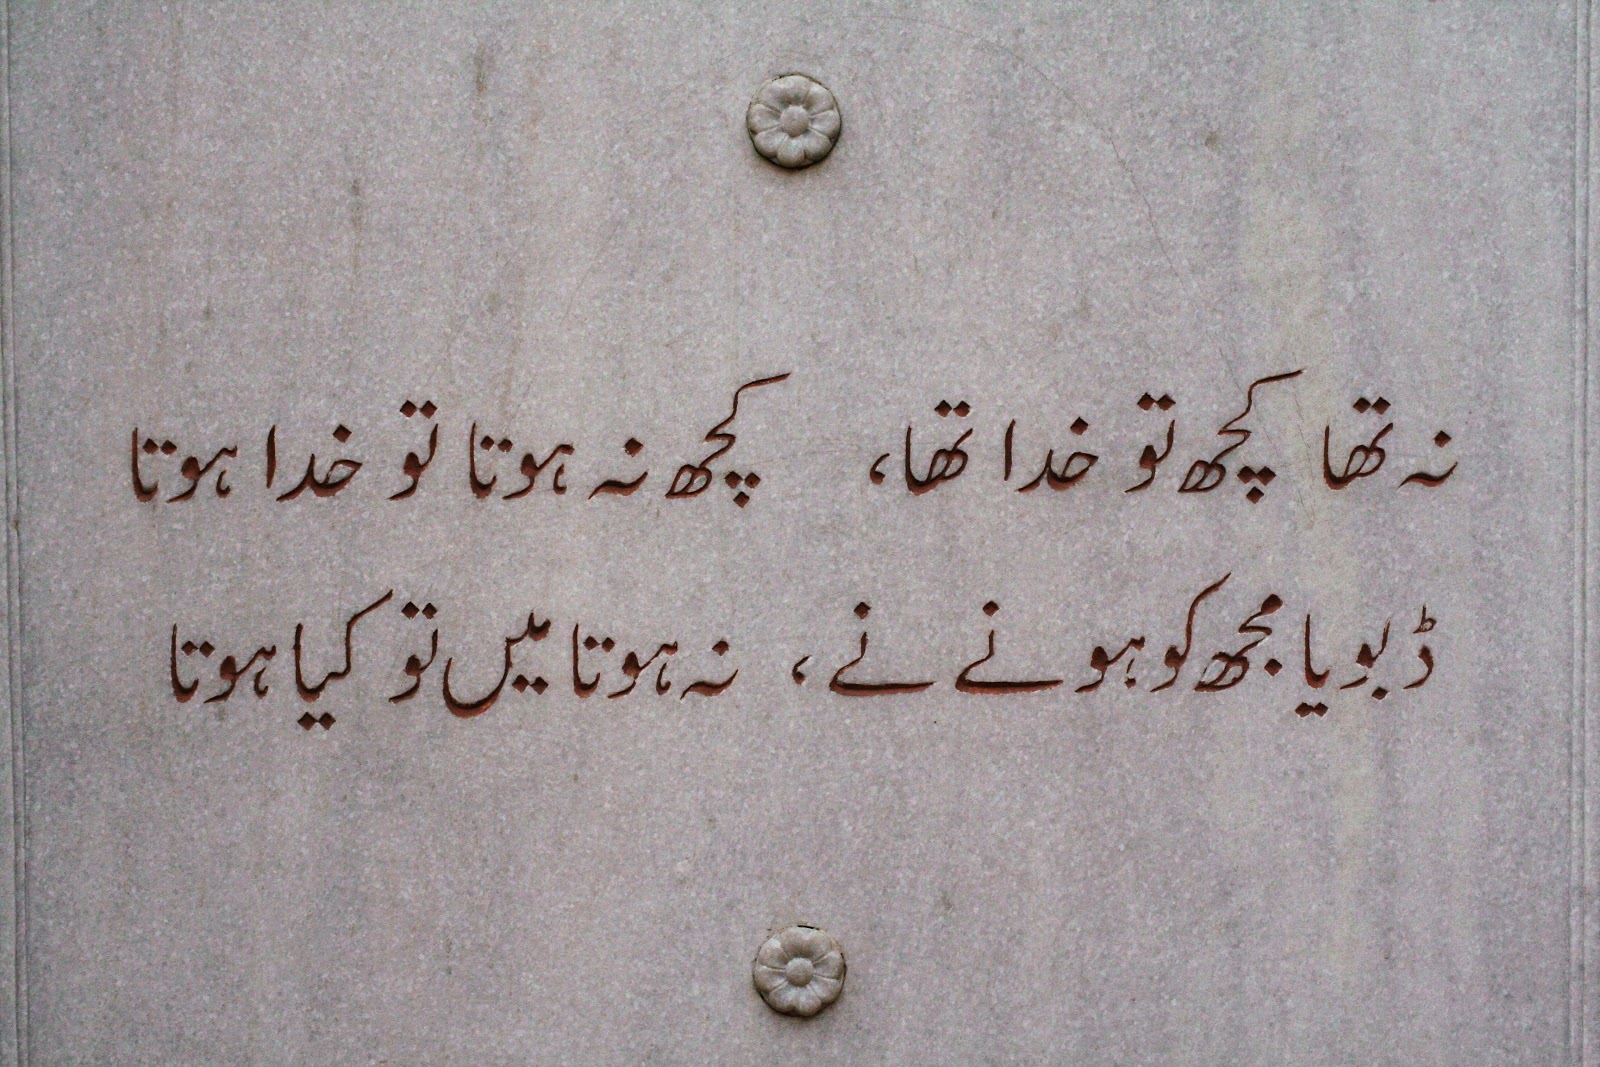 نہ تھا کچھ تو خدا تھا، کچھ نہ ہوتا تو خدا ہوتا
ڈبویا مجھ کو ہونے نے، نہ ہوتا میں تو کیا ہوتا